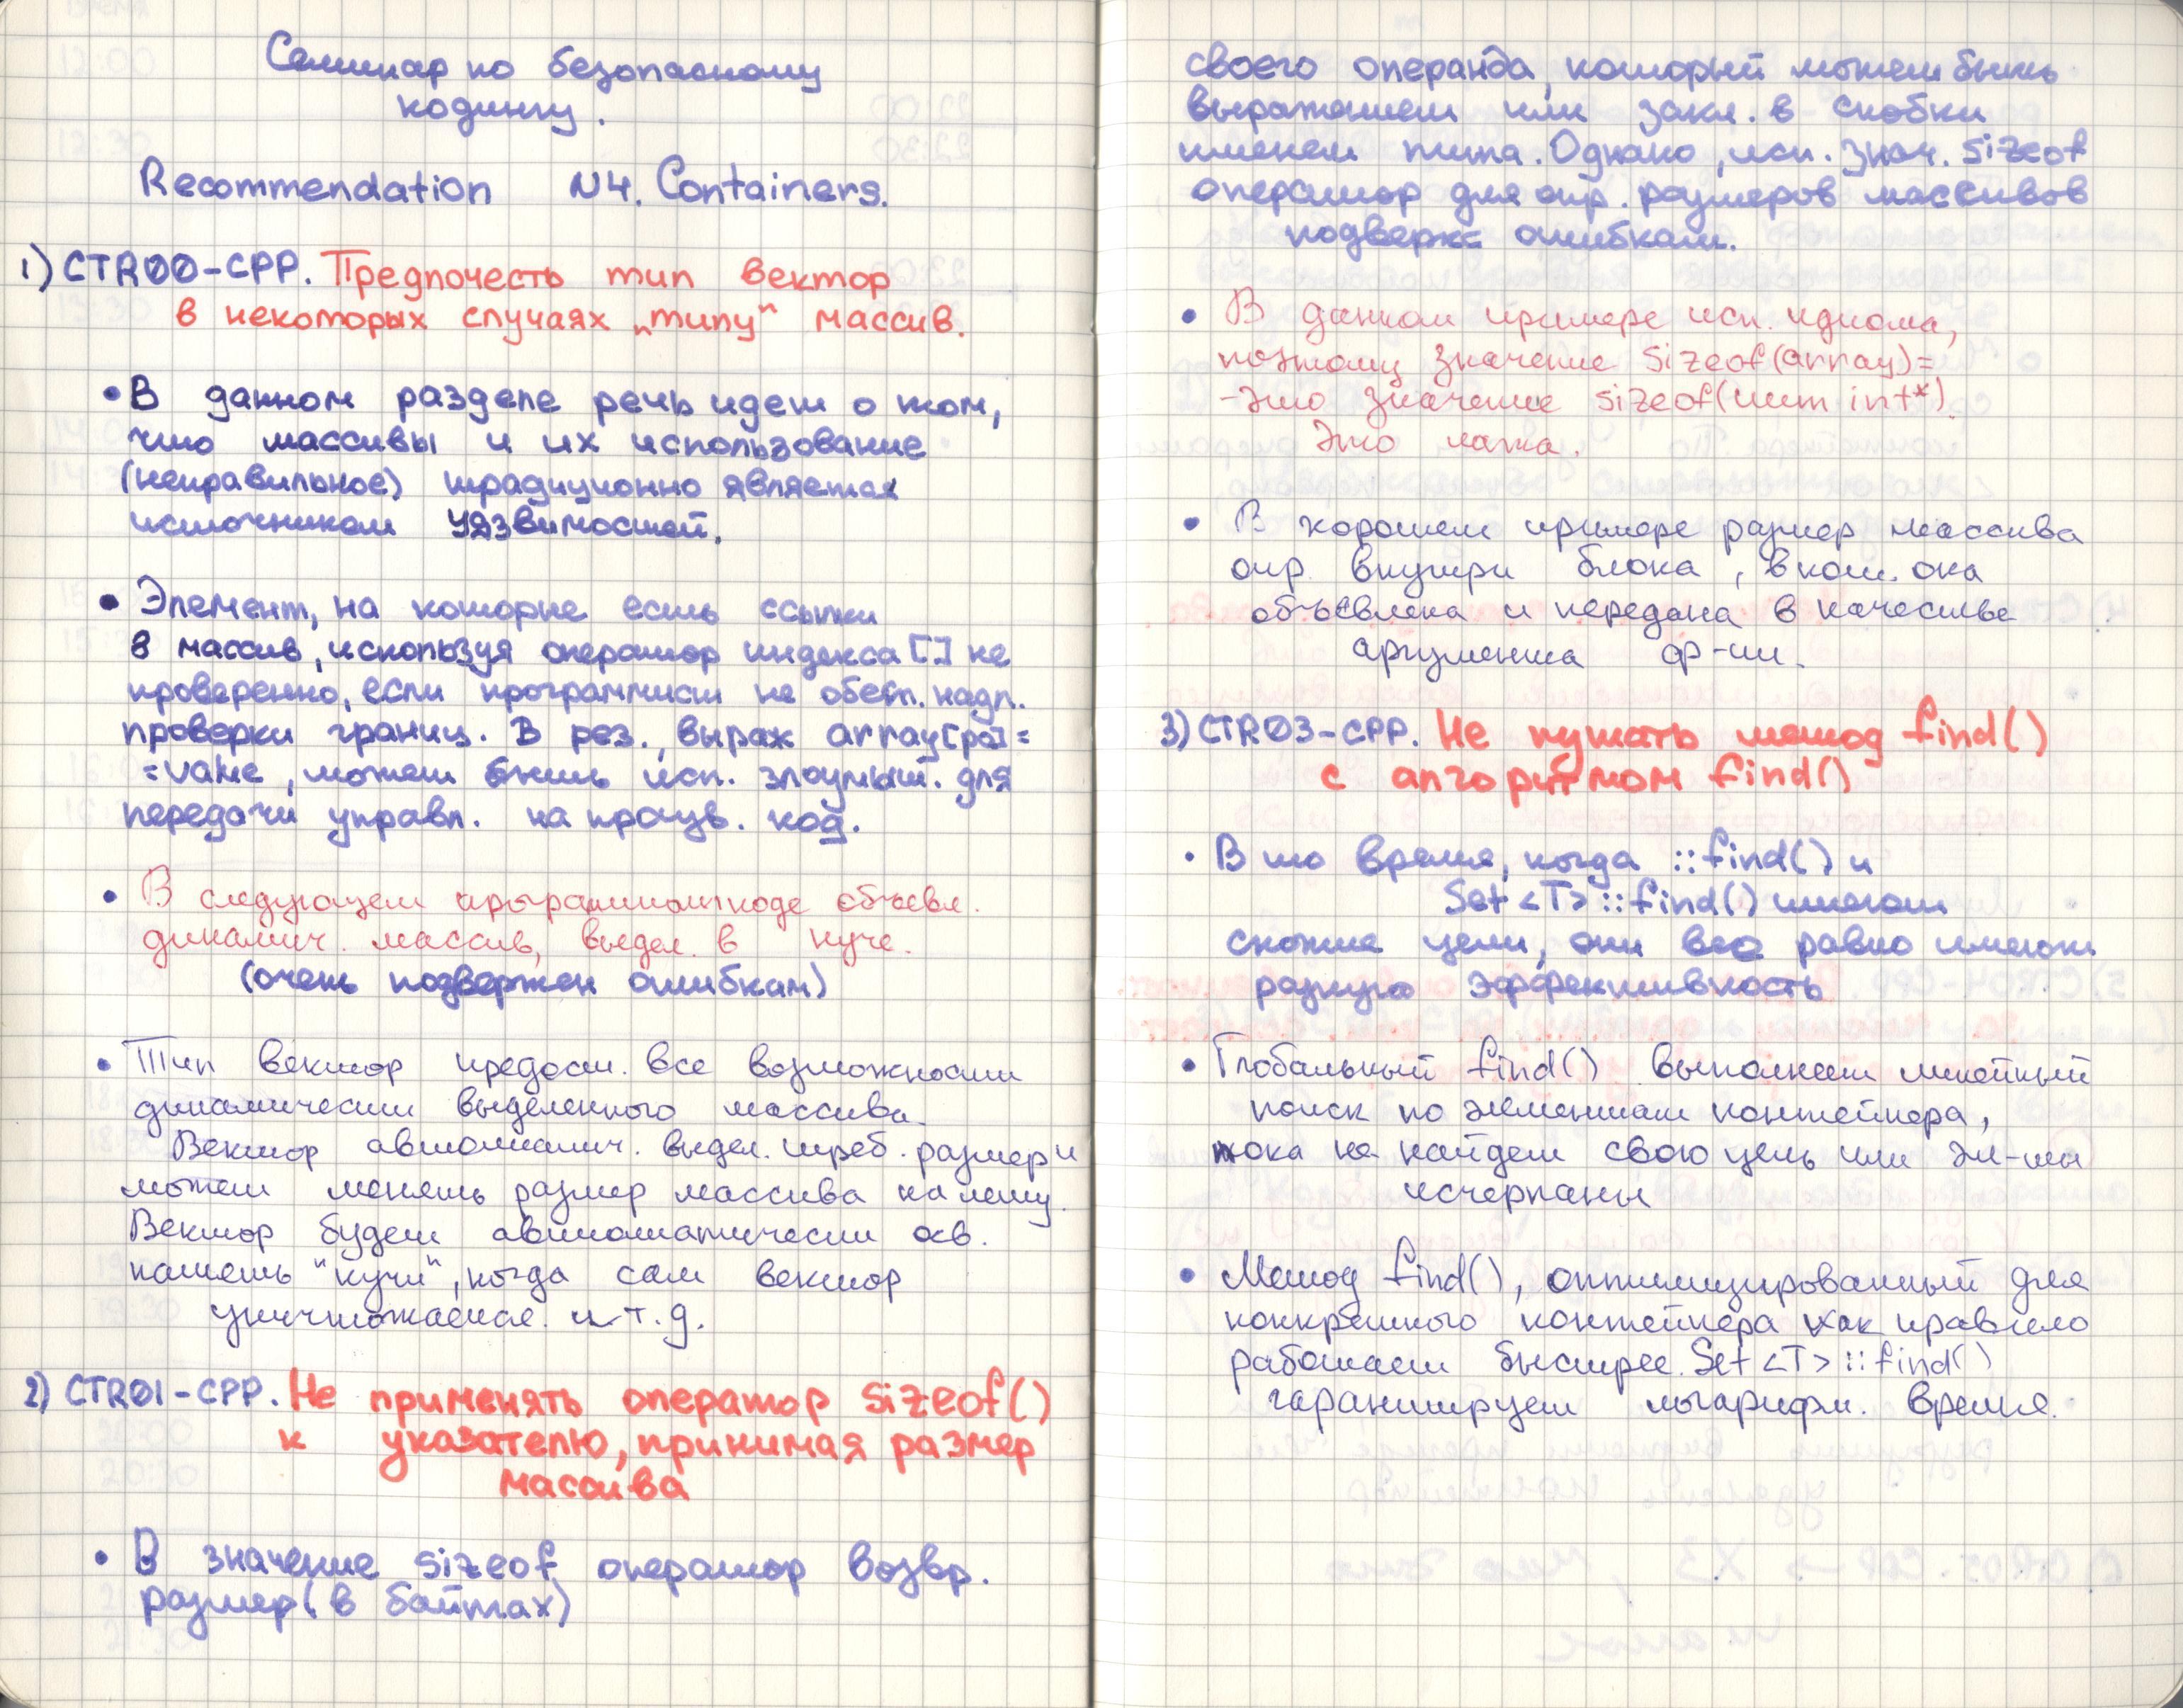 Семинар по безопасному
кодингу.
Recommendation N4. Containers.
1) CTR00-CPP. Предпочесть тип вектор
в некоторых случаях „типу" массив.
• В данном разделе речь идет о том,
что массивы и их использование
(неправильное) традиционно является
источником уязвимостей.
• Элемент, на которые есть ссылки
в массив, используя оператор индекса [] не
проверенно, если программист не обесп. надл.
проверки границ. В рез., выраж array[pos]=
=value, может быть исп. злоумыш. для
передачи управл. на произв. код.
• В следующем программном коде объявл.
динамич. массив, выдел. в куче.
(очень подвержен ошибкам)
• Тип вектор предост. все возможности
динамически выделенного массива.
Вектор автоматич. выдел. треб. размер и
может менять размер массива на лету.
Вектор будет автоматически осв.
память "кучи", когда сам вектор
уничтожается. и т.д.
2) CTR01-CPP. Не применять оператор sizeof()
к указателю, принимая размер
массива
• В значение sizeof оператор возвр.
размер (в байтах)
своего операнда, который может быть
выражением или закл. в скобки
именем типа. Однако, исп. знач. sizeof
оператор для опр. размеров массивов
подверж= ошибкам.
• В данном примере исп. идиома,
поэтому значение sizeof(array)=
-это значение sizeof(тип int*).
Это лажа.
• В хорошем примере размер массива
опр. внутри блока, в кот. она
объявлена и передана в качестве
аргумента ф-ии.
3) CTR03-CPP. Не путать метод find()
с алгоритмом find()
• В то время, когда ::find() и
Set<T>::find() имеют
схожие цели, они все равно имеют
разную эффективность
• Глобальный find() выполняет линейный
поиск по элементам контейнера,
пока не найдет свою цель или эл-ты
исчерпаны
• Метод find(), оптимизированный для
конкретного контейнера как правило
работает быстрее. Set<T>::find()
гарантирует логарифм. время.